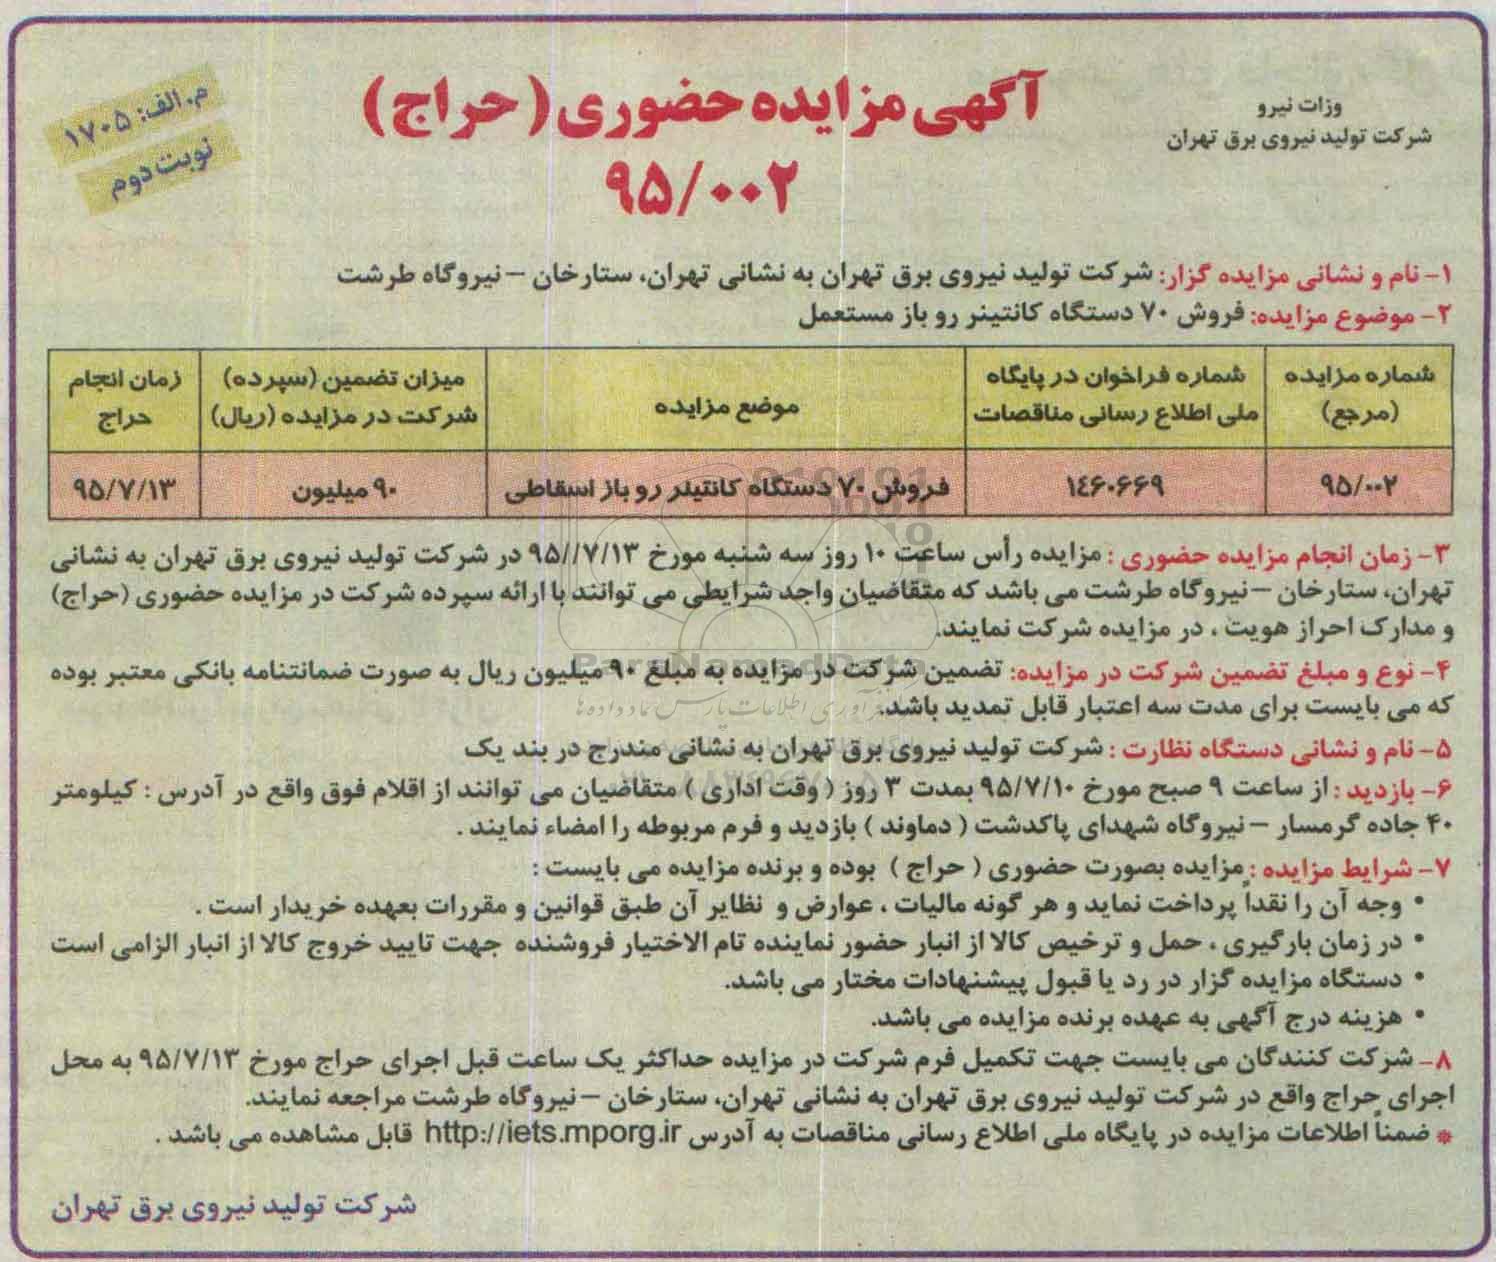 وزات نیرو
شرکت تولید نیروی برق تهران
آگهی مزایده حضوری ( حراج )
۹۵/۰۰۲
م.الف: ۱۷۰۵
نوبت دوم
۱- نام و نشانی مزایده گزار: شرکت تولید نیروی برق تهران به نشانی تهران، ستارخان – نیروگاه طرشت
۲- موضوع مزایده: فروش ۷۰ دستگاه کانتینر رو باز مستعمل
شماره مزایده (مرجع)
شماره فراخوان در پایگاه ملی اطلاع رسانی مناقصات
موضع مزایده
میزان تضمین (سپرده) شرکت در مزایده (ریال)
زمان انجام حراج
۹۵/۰۰۲
۱۴۶۰۶۶۹
فروش ۷۰ دستگاه کانتینر رو باز اسقاطی
۹۰ میلیون
۹۵/۷/۱۳
۳- زمان انجام مزایده حضوری : مزایده رأس ساعت ۱۰ روز سه شنبه مورخ ۹۵//۷/۱۳ در شرکت تولید نیروی برق تهران به نشانی
تهران، ستارخان – نیروگاه طرشت می باشد که متقاضیان واجد شرایطی می توانند با ارائه سپرده شرکت در مزایده حضوری (حراج)
و مدارک احراز هویت ، در مزایده شرکت نمایند.
۴- نوع و مبلغ تضمین شرکت در مزایده: تضمین شرکت در مزایده به مبلغ ۹۰ میلیون ریال به صورت ضمانتنامه بانکی معتبر بوده
که می بایست برای مدت سه اعتبار قابل تمدید باشد.
۵- نام و نشانی دستگاه نظارت : شرکت تولید نیروی برق تهران به نشانی مندرج در بند یک
۶- بازدید : از ساعت ۹ صبح مورخ ۹۵/۷/۱۰ بمدت ۳ روز ( وقت اداری ) متقاضیان می توانند از اقلام فوق واقع در آدرس : کیلومتر
۴۰ جاده گرمسار – نیروگاه شهدای پاکدشت ( دماوند ) بازدید و فرم مربوطه را امضاء نمایند .
۷- شرایط مزایده : مزایده بصورت حضوری ( حراج ) بوده و برنده مزایده می بایست :
• وجه آن را نقداً پرداخت نماید و هر گونه مالیات ، عوارض و نظایر آن طبق قوانین و مقررات بعهده خریدار است .
• در زمان بارگیری ، حمل و ترخیص کالا از انبار حضور نماینده تام الاختیار فروشنده جهت تایید خروج کالا از انبار الزامی است
• دستگاه مزایده گزار در رد یا قبول پیشنهادات مختار می باشد.
• هزینه درج آگهی به عهده برنده مزایده می باشد.
۸- شرکت کنندگان می بایست جهت تکمیل فرم شرکت در مزایده حداکثر یک ساعت قبل اجرای حراج مورخ ۹۵/۷/۱۳ به محل
اجرای حراج واقع در شرکت تولید نیروی برق تهران به نشانی تهران، ستارخان – نیروگاه طرشت مراجعه نمایند.
* ضمناً اطلاعات مزایده در پایگاه ملی اطلاع رسانی مناقصات به آدرس http://iets.mporg.ir قابل مشاهده می باشد .
شرکت تولید نیروی برق تهران
ParsNamadData
فرآوری اطلاعات پارس نماد داده ها